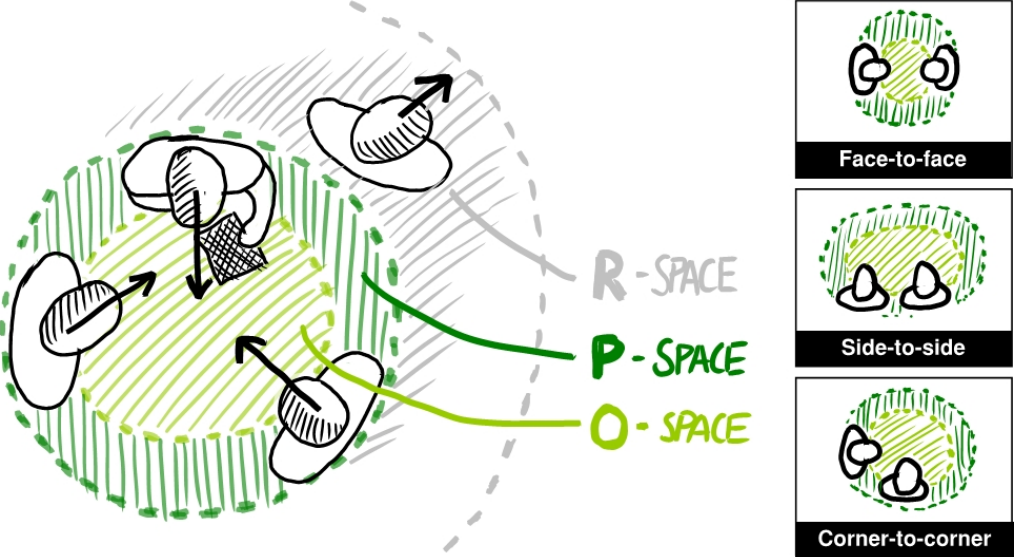 R-SPACE
P-SPACE
O-SPACE
Face-to-face
Side-to-side
Corner-to-corner